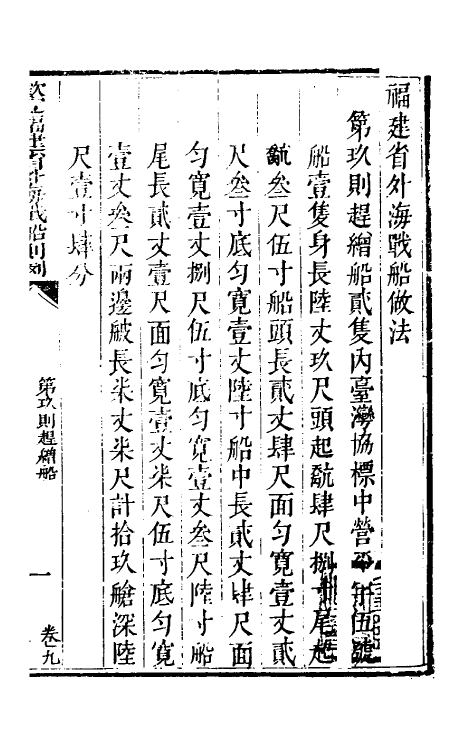 福建省外海戰船做法
第玖則趕繒船貳隻內臺灣協標中營平字伍號
船壹隻身長陸丈玖尺頭起㼽肆尺捌寸尾起
㼽叁尺伍寸船頭長貳丈肆尺面勻寬壹丈貳
尺叁寸底勻寬壹丈陸寸船中長貳丈肆尺面
勻寬壹丈捌尺伍寸底勻寬壹丈叁尺陸寸船
尾長貳丈壹尺面勻寬壹丈柒尺伍寸底勻寬
壹丈叁尺兩邊䑺長柒丈柒尺計拾玖艙深陸
尺壹寸肆分
欽定福建省外海戰船則例
第玖則趕繒船
一
卷九